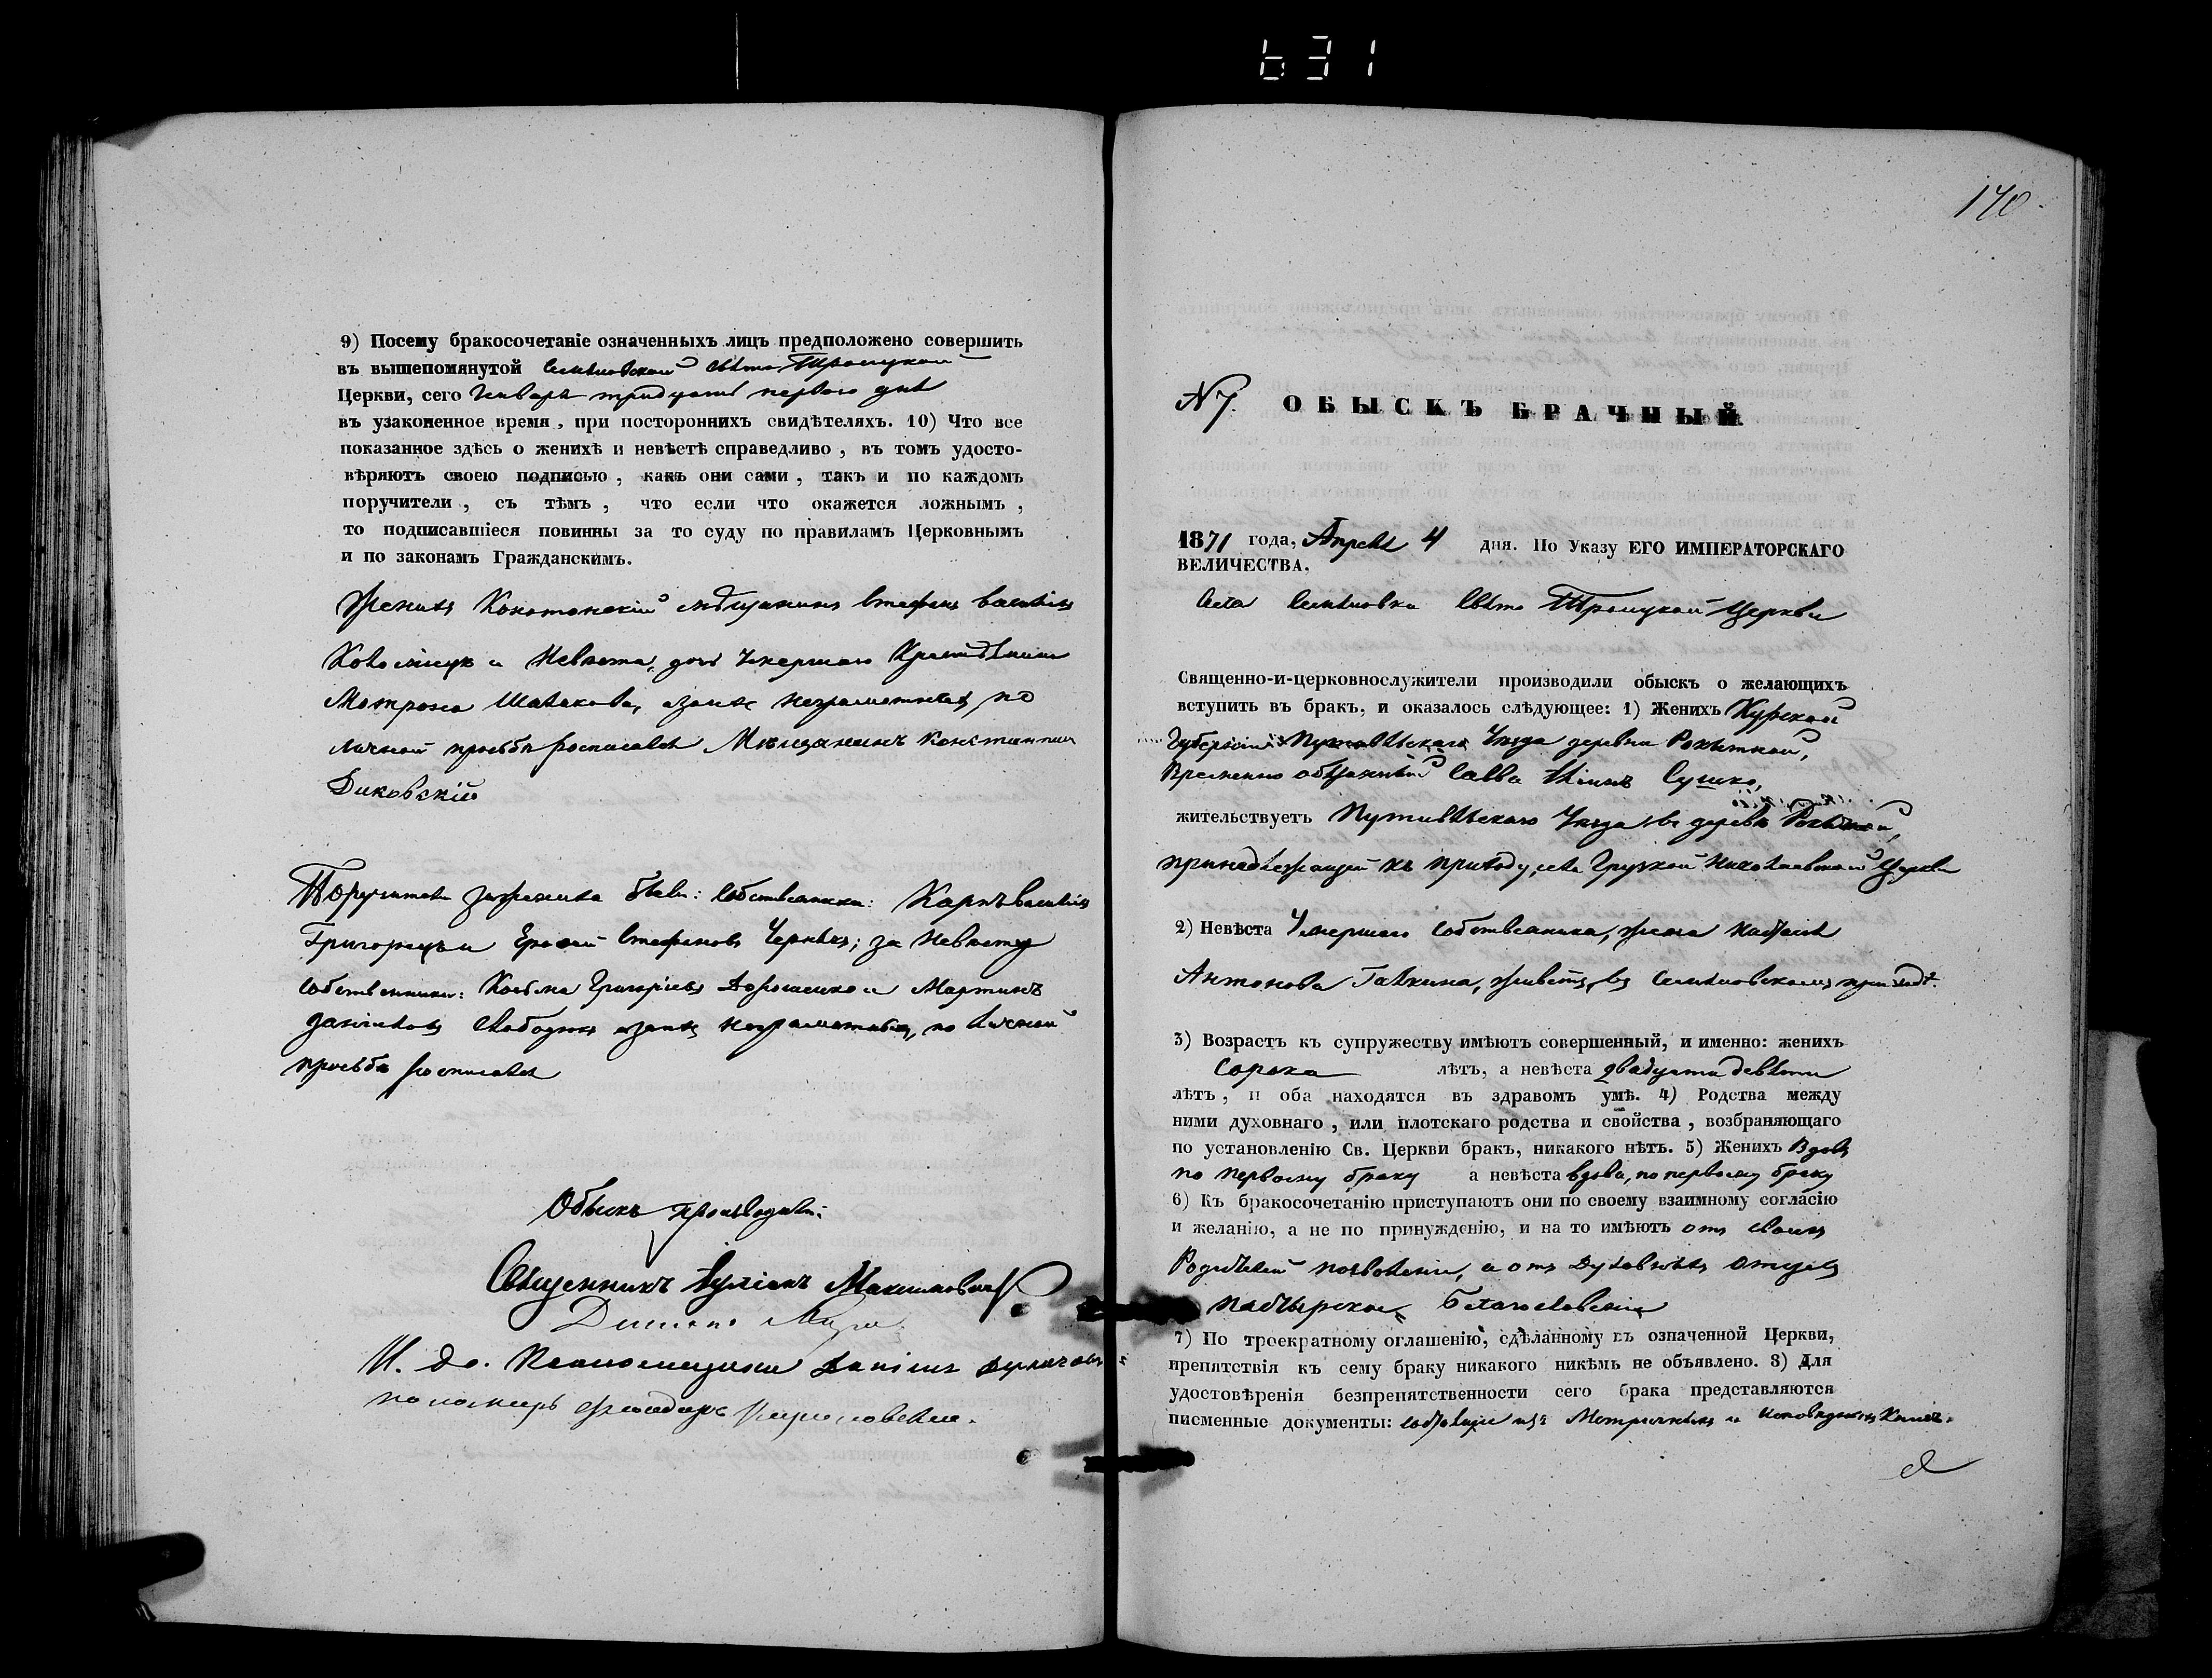 631
9) Посему бракосочетаніе означенныхъ лицъ предположено совершить
въ вышепомянутой Семіновской Свято Троицкой
Церкви, сего Января тридцать перваго дня
въ узаконенное время, при постороннихъ свидѣтеляхъ. 10) Что все
показанное здѣсь о женихѣ и невѣстѣ справедливо, въ томъ удосто-
вѣряютъ своею подписью, какъ они сами, такъ и по каждомъ
поручители, съ тѣмъ, что если что окажется ложнымъ,
то подписавшіеся повинны за то суду по правиламъ Церковнымъ
и по законамъ Гражданскимъ.
Женихъ Конотопскій мѣщанинъ Стефанъ
и Невѣста, дочь Умершаго
Матрона а за нихъ неграмотныхъ, по
личной просьбѣ росписался Мѣщанинъ Константинъ
Диковскій
Поручители за жениха были: собственники: Карпъ
и Ерофей Стефановъ Чернякъ; за Невѣсту
собственники: Косьма Григорьевъ Дорошенко и Мартинъ
а за нихъ неграмотныхъ, по личной
просьбѣ росписался
Обыскъ производили:
Священникъ Іуліанъ Максимовичъ
И. до. Псаломщика
пономарь
170
N 7. ОБЫСКЪ БРАЧНЫЙ
1871 года, Апрѣля 4 дня. По Указу ЕГО ИМПЕРАТОРСКАГО
ВЕЛИЧЕСТВА.
Села Семіновки Свято Троицкой Церкви
Священно-и-церковнослужители производили обыскъ о желающихъ
вступить въ бракъ, и оказалось слѣдующее: 1) Женихъ Курской
Губерніи Путивльскаго Уѣзда деревни
Временно обязанный Савва Сушко,
жительствуетъ Путивльскаго Уѣзда въ деревнѣ
принадлежащей къ приходу, села Грузкой Николаевской Церкви
2) Невѣста Умершаго собственника, жена
Антонова Галкина, живетъ въ Семіновскомъ приходѣ.
3) Возрастъ къ супружеству имѣютъ совершенный, и именно: женихъ
Сорока лѣтъ, а невѣста двадцати девяти
лѣтъ, и оба находятся въ здравомъ умѣ. 4) Родства между
ними духовнаго, или плотскаго родства и свойства, возбраняющаго
по установленію Св. Церкви бракъ, никакого нѣтъ. 5) Женихъ Вдовъ
по первому браку а невѣста вдова, по первому браку
6) Къ бракосочетанію приступаютъ они по своему взаимному согласію
и желанію, а не по принужденію, и на то имѣютъ отъ своихъ
Родителей позволеніе, а отъ Духовныхъ Отцевъ
пастырское благословеніе
7) По троекратному оглашенію, сдѣланному въ означенной Церкви,
препятствія къ сему браку никакого никѣмъ не объявлено. 8) Для
удостовѣренія безпрепятственности сего брака представляются
писменные документы: Метричныхъ и Исповѣдныхъ Книгъ.